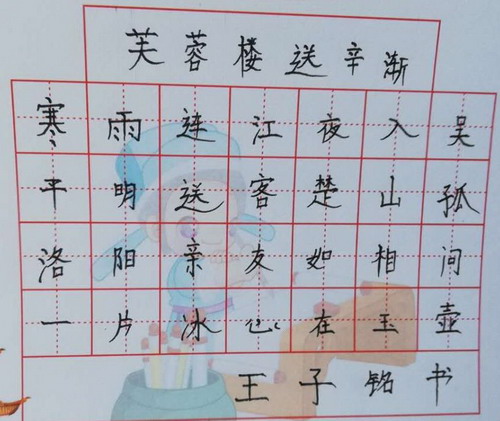 芙蓉楼送辛渐
寒雨连江夜入吴
平明送客楚山孤
洛阳亲友如相问
一片冰心在玉壶
王子铭书